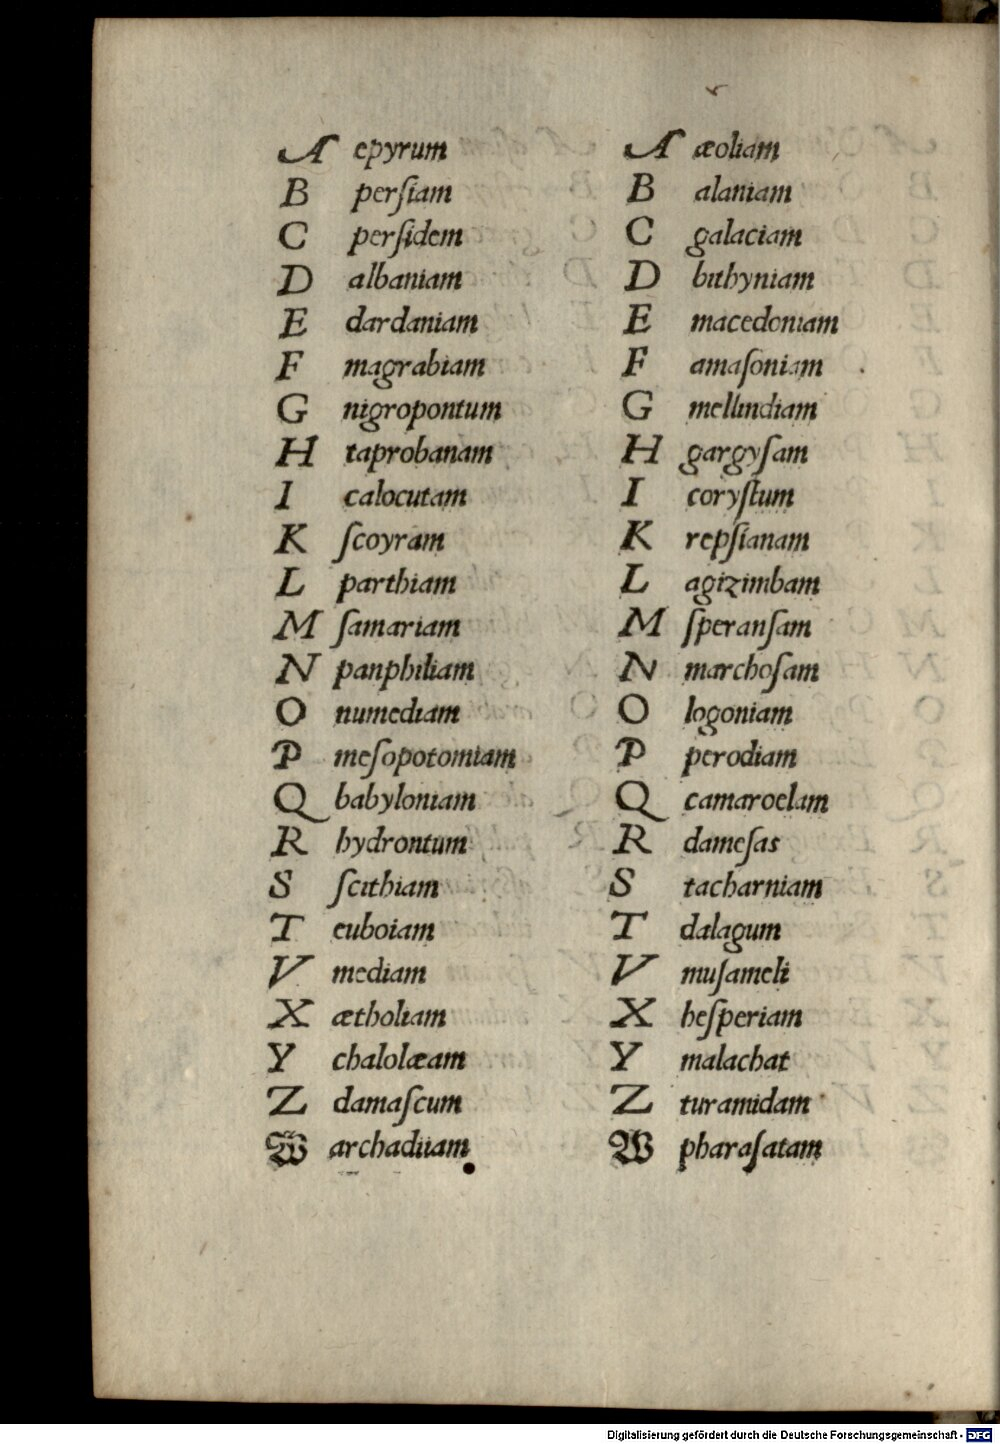 A epyrum
B perſiam
C perſidem
D albaniam
E dardaniam
F magrabiam
G nigropontum
H taprobanam
I calocutam
K ſcoyram
L parthiam
M ſamariam
N panphiliam
O numediam
P meſopotomiam
Q babyloniam
R hydrontum
S ſcithiam
T euboiam
V mediam
X ætholiam
Y chalolæam
Z damaſcum
W archadiiam
A æoliam
B alaniam
C galaciam
D bithyniam
E macedoniam
F amaſoniam
G mellindiam
H gargyſam
I coryſtum
K repſianam
L agizimbam
M ſperanſam
N marchoſam
O logoniam
P perodiam
Q camaroelam
R dameſas
S tacharniam
T dalagum
V muſameli
X heſperiam
Y malachat
Z turamidam
W pharaſatam
Digitalisierung gefördert durch die Deutsche Forschungsgemeinschaft - DFG